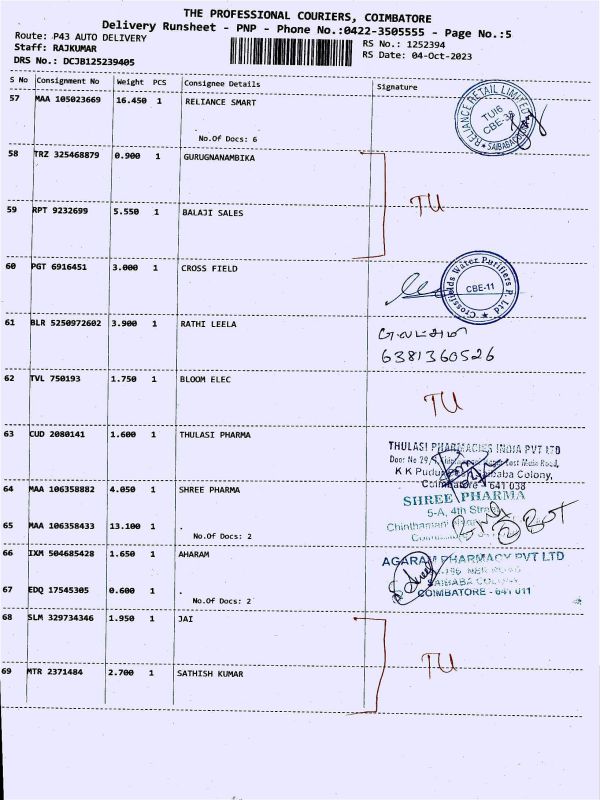 THE PROFESSIONAL COURIERS, COIMBATORE
Delivery Runsheet - PNP - Phone No.:0422-3505555 - Page No.:5
Route: P43 AUTO DELIVERY
Staff: RAJKUMAR
DRS No.: DCJB125239405
RS No.: 1252394
RS Date: 04-Oct-2023
S No Consignment No Weight Pcs Consignee Details Signature
57 MAA 105023669 16.450 1 RELIANCE SMART
No.Of Docs: 6
RELIANCE RETAIL LIMITED
TUI6
CBE-38
SAIBABA
58 TRZ 325468879 0.900 1 GURUGNANAMBIKA
TU
59 RPT 9232699 5.550 1 BALAJI SALES
60 PGT 6916451 3.000 1 CROSS FIELD
Crossfields Water Purifiers P. Ltd
CBE-11
61 BLR 5250972602 3.900 1 RATHI LEELA
6381360526
62 TVL 750193 1.750 1 BLOOM ELEC
TU
63 CUD 2080141 1.600 1 THULASI PHARMA
THULASI PHARMACIES INDIA PVT LTD
Door No 29/ East Main Road,
K K Pudur Saibaba Colony,
Coimbatore - 641 038
64 MAA 106358882 4.050 1 SHREE PHARMA
SHREE PHARMA
5-A, 4th Street
Chinthamani
65 MAA 106358433 13.100 1 .
No.Of Docs: 2
66 IXM 504685428 1.650 1 AHARAM
AGARAM PHARMACY PVT LTD
SAIBABA COLONY
COIMBATORE - 641 011
67 EDQ 17545305 0.600 1 .
No.Of Docs: 2
68 SLM 329734346 1.950 1 JAI
TU
69 MTR 2371484 2.700 1 SATHISH KUMAR